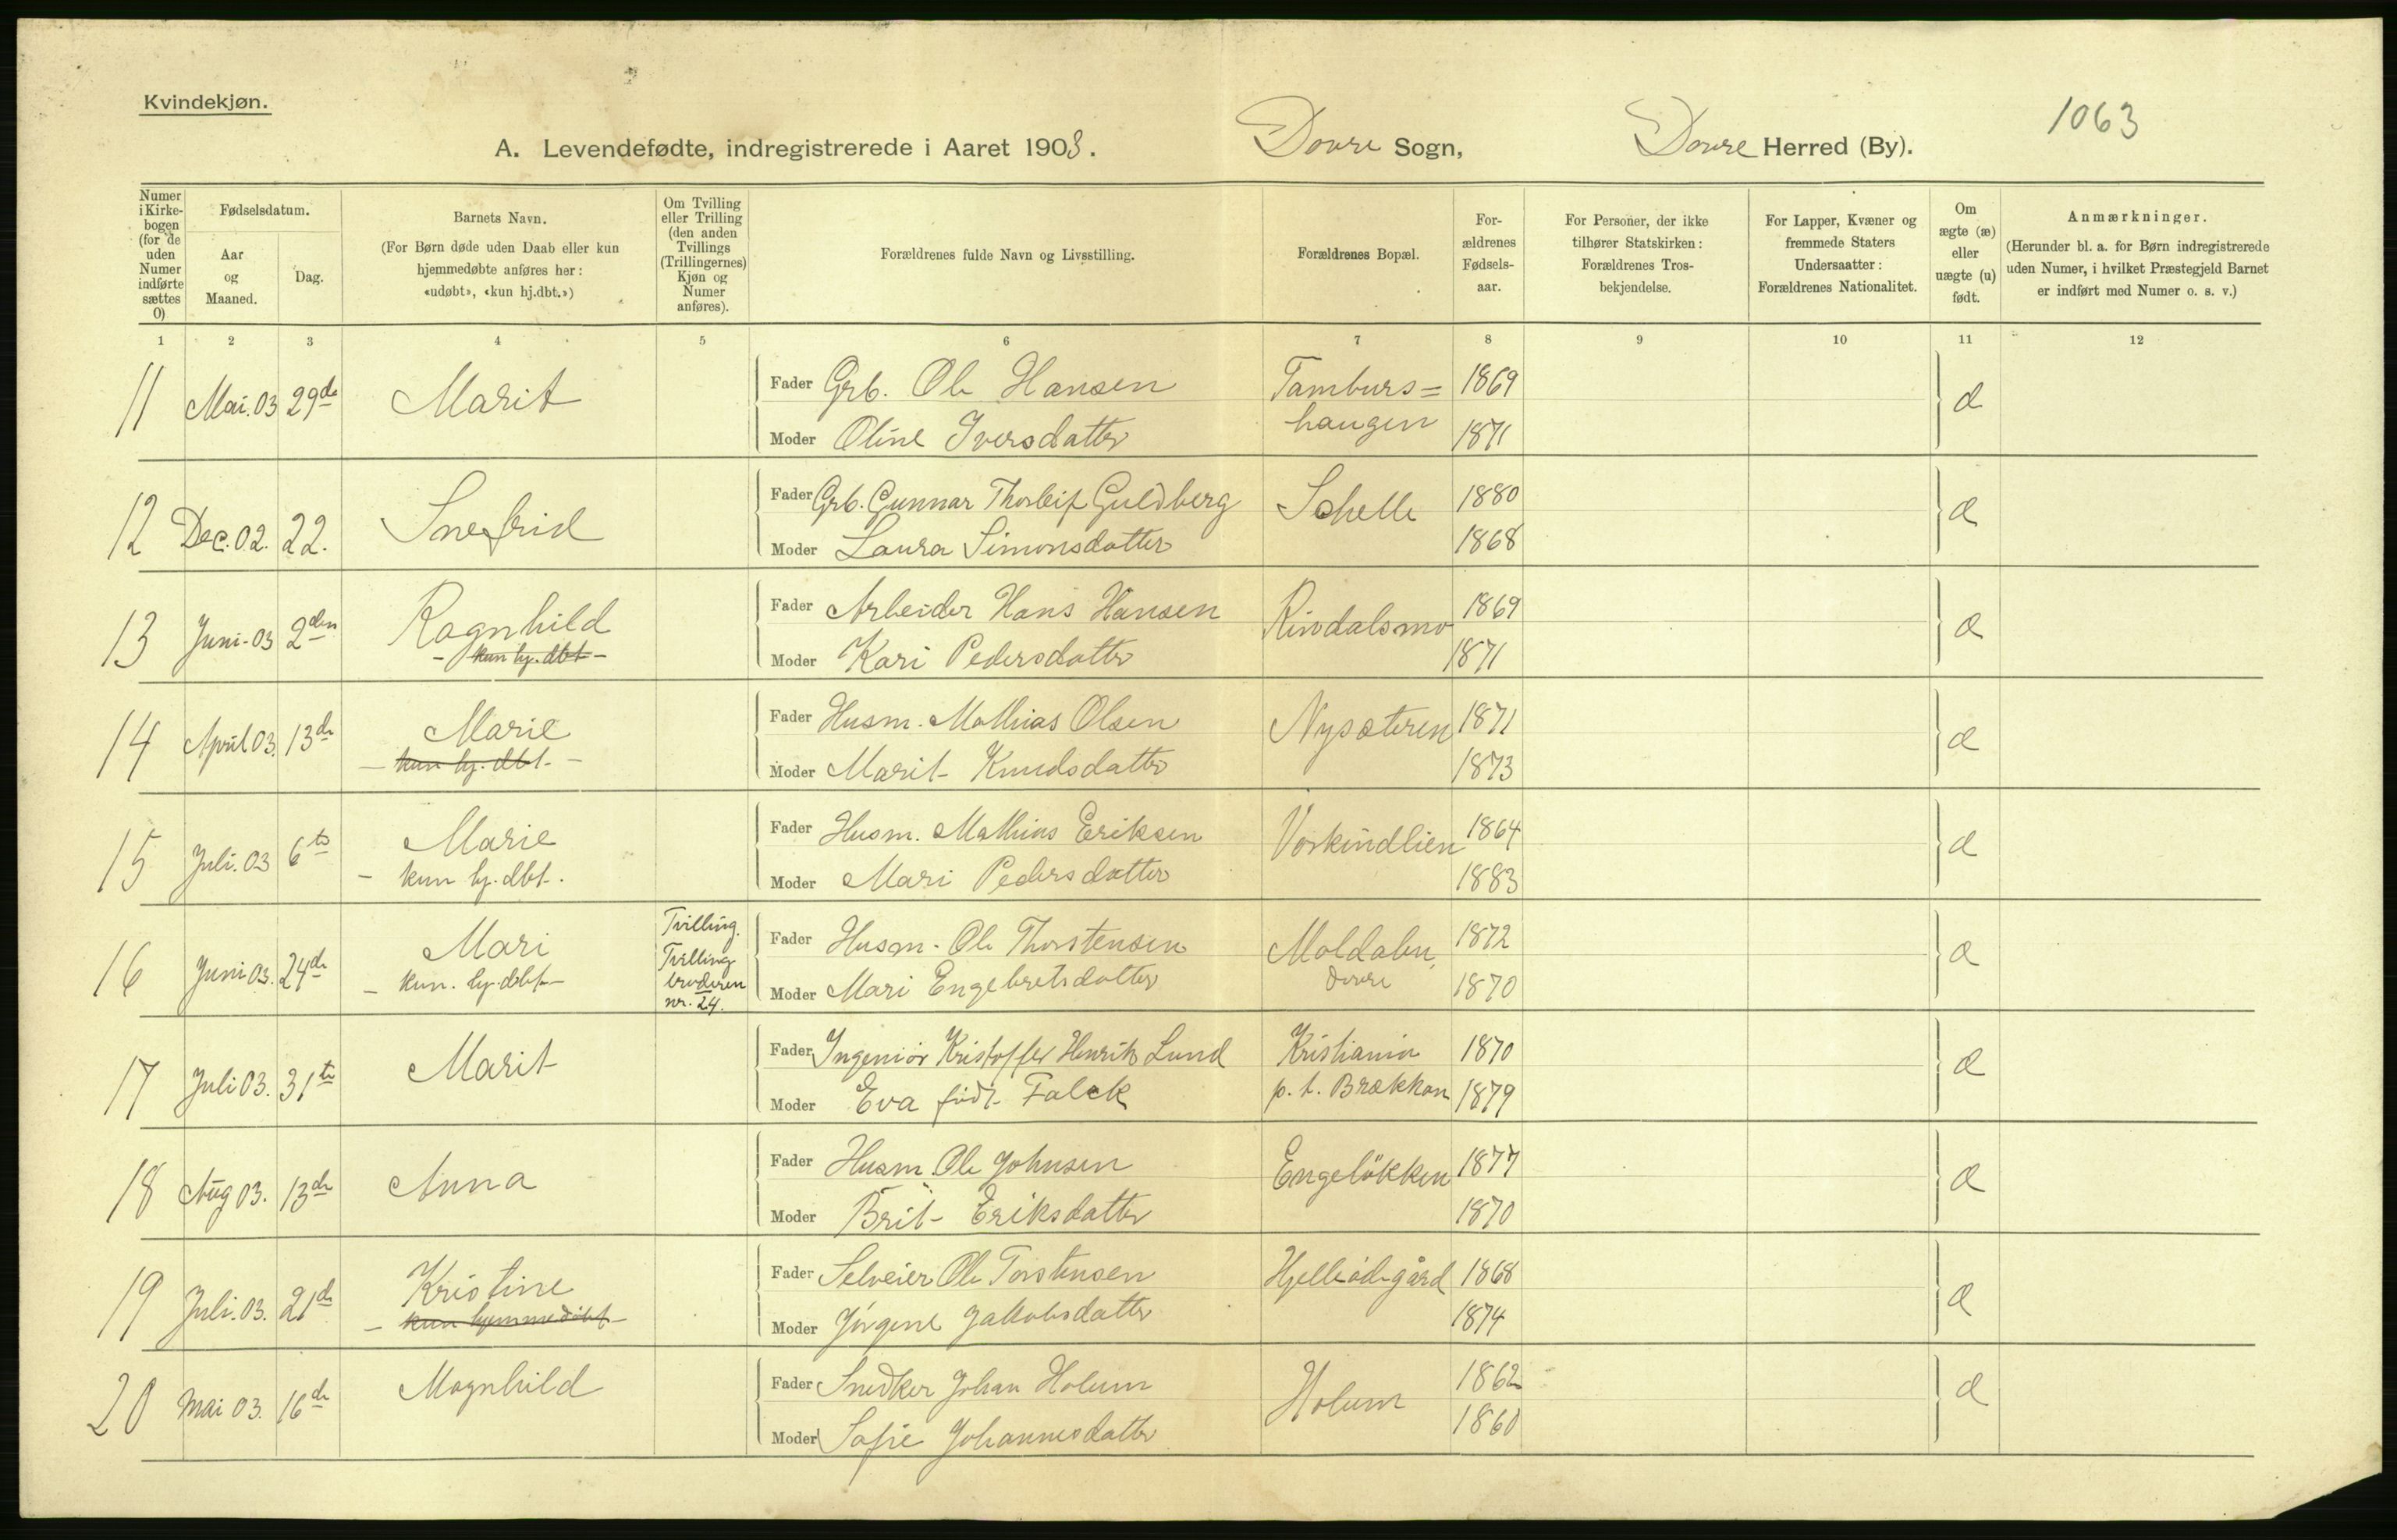 Kvindekjøn.
1063
A. Levendefødte, indregistrerede i Aaret 1903. Dovre Sogn, Dovre Herred (By).
Numer i Kirkebogen (for de uden Numer indførte sættes 0)
Fødselsdatum.
Aar og Maaned.
Dag.
Barnets Navn.
(For Børn døde uden Daab eller kun hjemmedøbte anføres her: «udøbt», «kun hj.dbt.»)
Om Tvilling eller Trilling (den anden Tvillings (Trillingernes) Kjøn og Numer anføres).
Forældrenes fulde Navn og Livsstilling.
Forældrenes Bopæl.
For-ældrenes Fødsels-aar.
For Personer, der ikke tilhører Statskirken: Forældrenes Tros-bekjendelse.
For Lapper, Kvæner og fremmede Staters Undersaatter: Forældrenes Nationalitet.
Om ægte (æ) eller uægte (u) født.
Anmærkninger.
(Herunder bl. a. for Børn indregistrerede uden Numer, i hvilket Præstegjeld Barnet er indført med Numer o. s. v.)
1 2 3 4 5 6 7 8 9 10 11 12
11 Mai.03 29de Marit Fader Grb. Ole Hansen Tamburs= 1869 æ
Moder Oline Iversdatter haugen 1871
12 Dec.02. 22. Snefrid Fader Grb. Gunnar Thorleif Guldberg Schelle 1880 æ
Moder Laura Simonsdatter 1868
13 Juni.03 2den Ragnhild Fader Arbeider Hans Hansen Rindalsmo 1869 æ
- kun hj. dbt - Moder Kari Pedersdatter 1871
14 April 03. 13de Marie Fader Husm. Mathias Olsen Nysæteren 1871 æ
- kun hj. dbt. - Moder Marit Knudsdatter 1873
15 Juli.03 6te Marie Fader Husm. Mathias Eriksen Vorkindlien 1864 æ
- kun hj. dbt. Moder Mari Pedersdatter 1883
16 Juni 03. 24de Mari Tvilling. Fader Husm. Ole Thorstensen Moldalen, 1872 æ
- kun. hj. döbt - Tvilling broderen nr. 24. Moder Mari Engebretsdatter Dovre 1870
17 Juli 03. 31te Marit Fader Ingeniör Kristoffer Henrik Lund Kristiania 1870 æ
Moder Eva födt Falck p. t. Brækken 1879
18 Aug 03. 13de Anna Fader Husm. Ole Johnsen Engelökken 1877 æ
Moder Brit Eriksdatter 1870
19 Juli.03. 21de Kristine Fader Selveier Ole Torstensen Hjelleödegård 1868 æ
- kun hjemmedöbt - Moder Jörgine Jakobsdatter 1874
20 Mai 03. 16de Magnhild Fader Snedker Johan Holum Holum 1862 æ
Moder Sofie Johannesdatter 1860